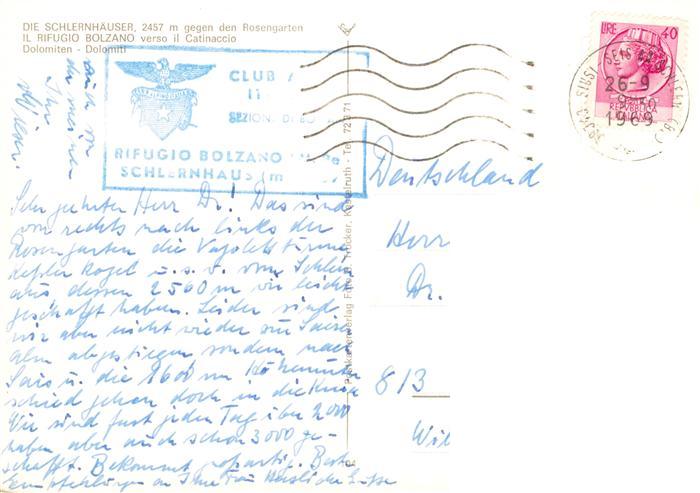 DIE SCHLERNHÄUSER, 2457 m gegen den Rosengarten
IL RIFUGIO BOLZANO verso il Catinaccio
Dolomiten - Dolomiti
CLUB
SEZION
RIFUGIO BOLZANO
SCHLERNHAUS m
LIRE 40
SIUSI - SEIS
26-9
1969
REPVBBLICA
ITALIANA
Postkartenverlag Trocker, Kastelruth - Tel. 72371
Sehr geehrter Herr Dr.! Das sind
von rechts nach links der
Rosengarten die Vajolettürme
Kesselkogel u.s.v. vom Schlern
aus dessen 2560 m wir leicht
geschafft haben. Leider sind
wir aber nicht wieder zur Seiser
alm abgestiegen sondern nach
Seis u. die 1600 m Höhenunter
schied gehen doch in die Knie
Wir sind fast jeden Tag über 2000
haben aber auch schon 3000 ge-
schafft. Bekommt großartig. Beste
Empfehlungen an Ihre Frau Herzliche Grüße
auch von
der meinen
Ihr
Deutschland
Herr
Dr.
813
Wil